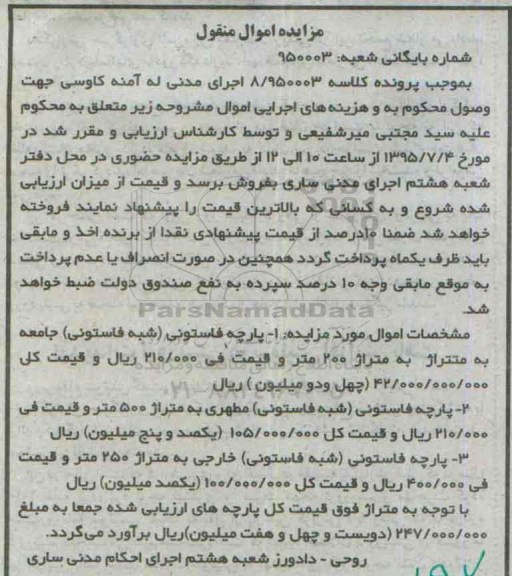 مزایده اموال منقول
شماره بایگانی شعبه: ۹۵۰۰۰۳
بموجب پرونده کلاسه ۸/۹۵۰۰۰۳ اجرای مدنی له آمنه کاوسی جهت
وصول محکوم به و هزینه های اجرایی اموال مشروحه زیر متعلق به محکوم
علیه سید مجتبی میرشفیعی و توسط کارشناس ارزیابی و مقرر شد در
مورخ ۱۳۹۵/۷/۴ از ساعت ۱۰ الی ۱۲ از طریق مزایده حضوری در محل دفتر
شعبه هشتم اجرای مدنی ساری بفروش برسد و قیمت از میزان ارزیابی
شده شروع و به کسانی که بالاترین قیمت را پیشنهاد نمایند فروخته
خواهد شد ضمنا ۱۰درصد از قیمت پیشنهادی نقدا از برنده اخذ و مابقی
باید ظرف یکماه پرداخت گردد همچنین در صورت انصراف یا عدم پرداخت
به موقع مابقی وجه ۱۰ درصد سپرده به نفع صندوق دولت ضبط خواهد
شد.
ParsNamadData
مشخصات اموال مورد مزایده: ۱- پارچه فاستونی (شبه فاستونی) جامعه
به متتراژ به متراژ ۲۰۰ متر و قیمت فی ۲۱۰/۰۰۰ ریال و قیمت کل
۴۲/۰۰۰/۰۰۰ (چهل ودو میلیون ) ریال
۲- پارچه فاستونی (شبه فاستونی) مطهری به متراژ ۵۰۰ متر و قیمت فی
۲۱۰/۰۰۰ ریال و قیمت کل ۱۰۵/۰۰۰/۰۰۰ (یکصد و پنج میلیون) ریال
۳- پارچه فاستونی (شبه فاستونی) خارجی به متراژ ۲۵۰ متر و قیمت
فی ۴۰۰/۰۰۰ ریال و قیمت کل ۱۰۰/۰۰۰/۰۰۰ (یکصد میلیون) ریال
با توجه به متراژ فوق قیمت کل پارچه های ارزیابی شده جمعا به مبلغ
۲۴۷/۰۰۰/۰۰۰ (دویست و چهل و هفت میلیون)ریال برآورد می‌گردد.
روحی - دادورز شعبه هشتم اجرای احکام مدنی ساری